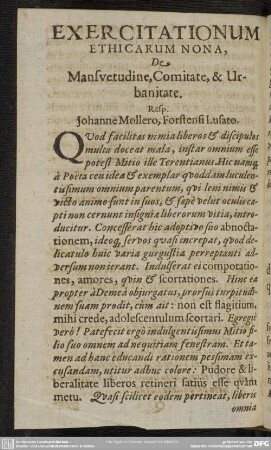 EXERCITATIONUM
ETHICARUM NONA,
De
Mansvetudine, Comitate, & Ur-
banitate.
Resp.
Johanne Mollero, Forstensi Lusato.
QVod facilitas nimia liberos & discipulos
multa doceat mala, instar omnium esse
potest Mitio ille Terentianus. Hic namq;
à Poëta ceu idea & exemplar quoddam luculen-
tissimum omnium parentum, qui leni nimis &
victo animo sunt in suos, & sæpè velut oculis ca-
pti non cernunt insignia liberorum vitia, intro-
ducitur. Concesserat hic adoptivo suo abnocta-
tionem, ideoq; servos quasi increpat, quod de-
licatulo huic varia gurgustia perreptanti ad-
versum non ierant. Indulserat ei compotatio-
nes, amores, quin & scortationes. Hinc ea
propter à Demea objurgatus, prorsus turpitudi-
nem suam prodit, cùm ait: non est flagitium,
mihi crede, adolescentulum scortari. Egregiè
verò! Patefecit ergò indulgentissimus Mitio fi-
lio suo omnem ad nequitiam fenestram. Et ta-
men ad hanc educandi rationem pessimam ex-
cusandam, utitur adhuc colore: Pudore & li-
beralitate liberos retineri satius esse qvàm
metu. Quasi scilicet eodem pertineat, liberis
omnia